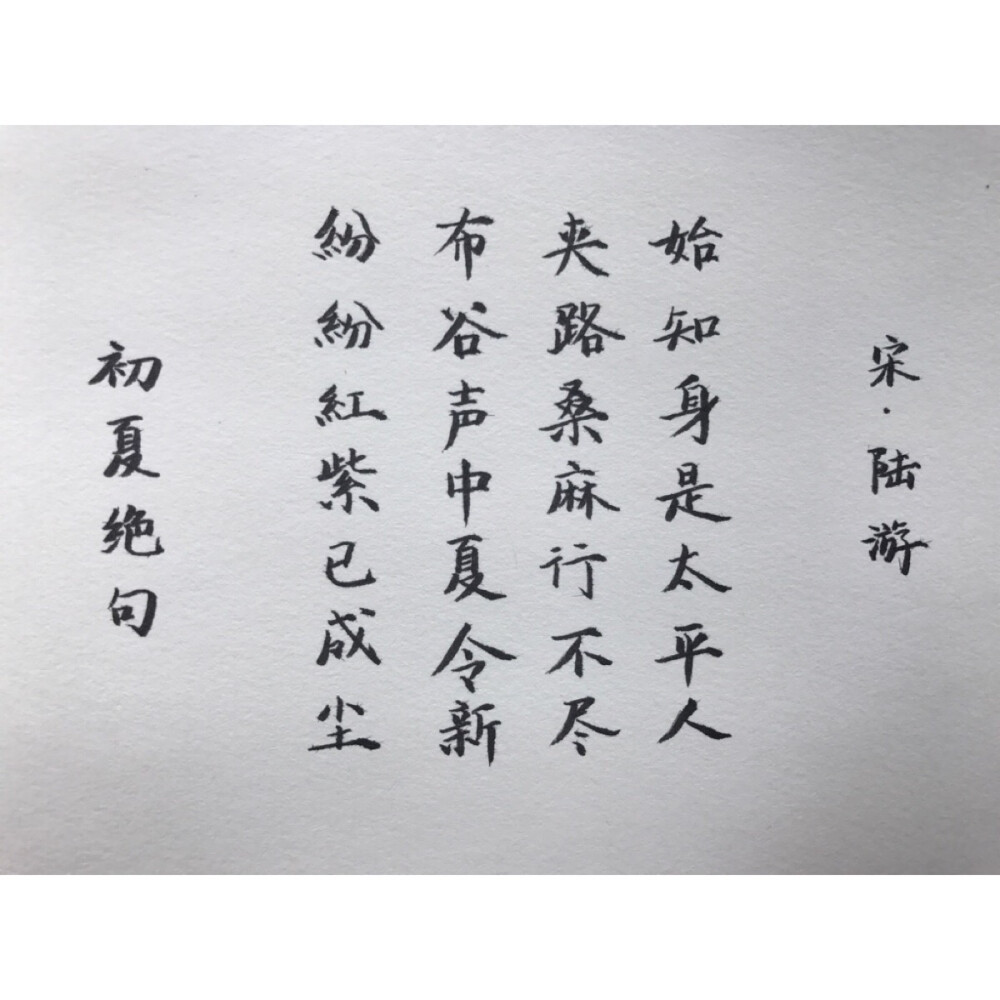 初夏绝句
紛紛紅紫已成尘
布谷声中夏令新
夹路桑麻行不尽
始知身是太平人
宋·陆游